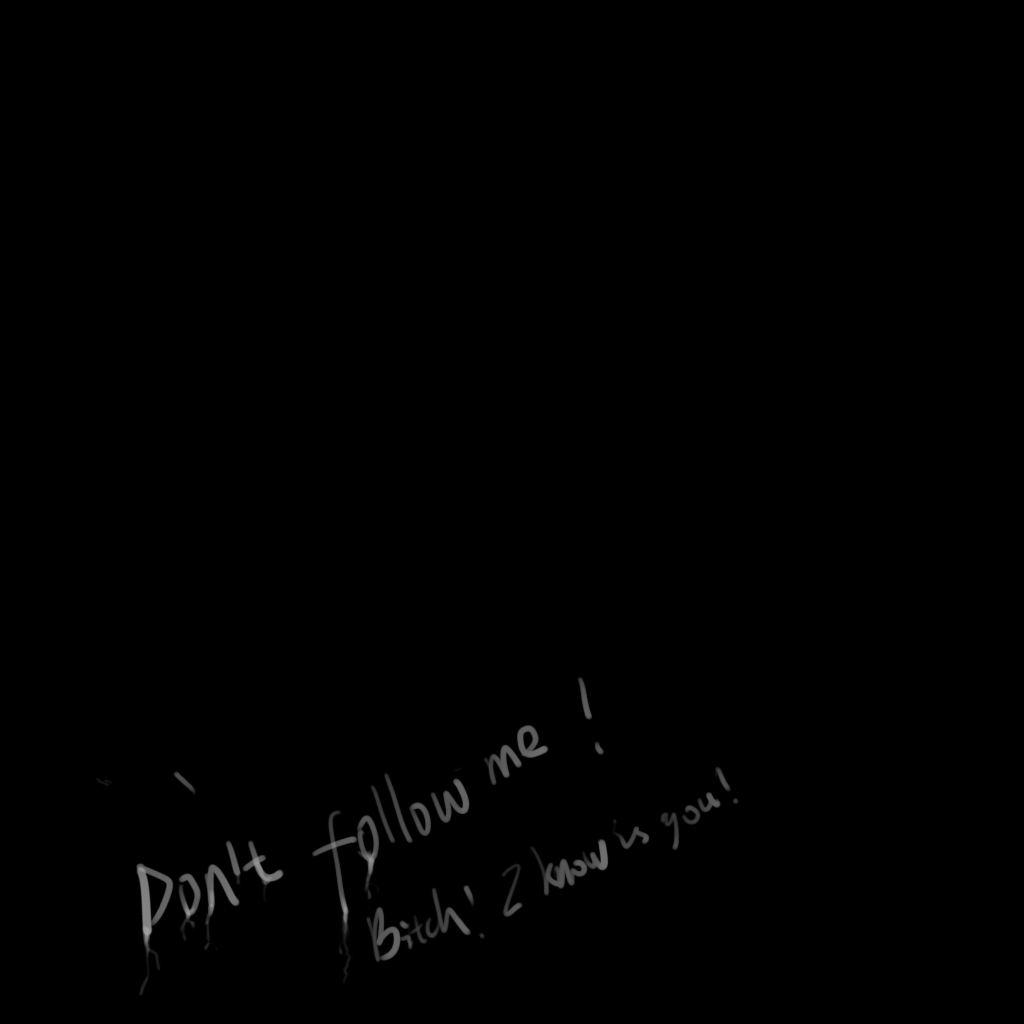 Don't follow me!
Bitch! I know is you!